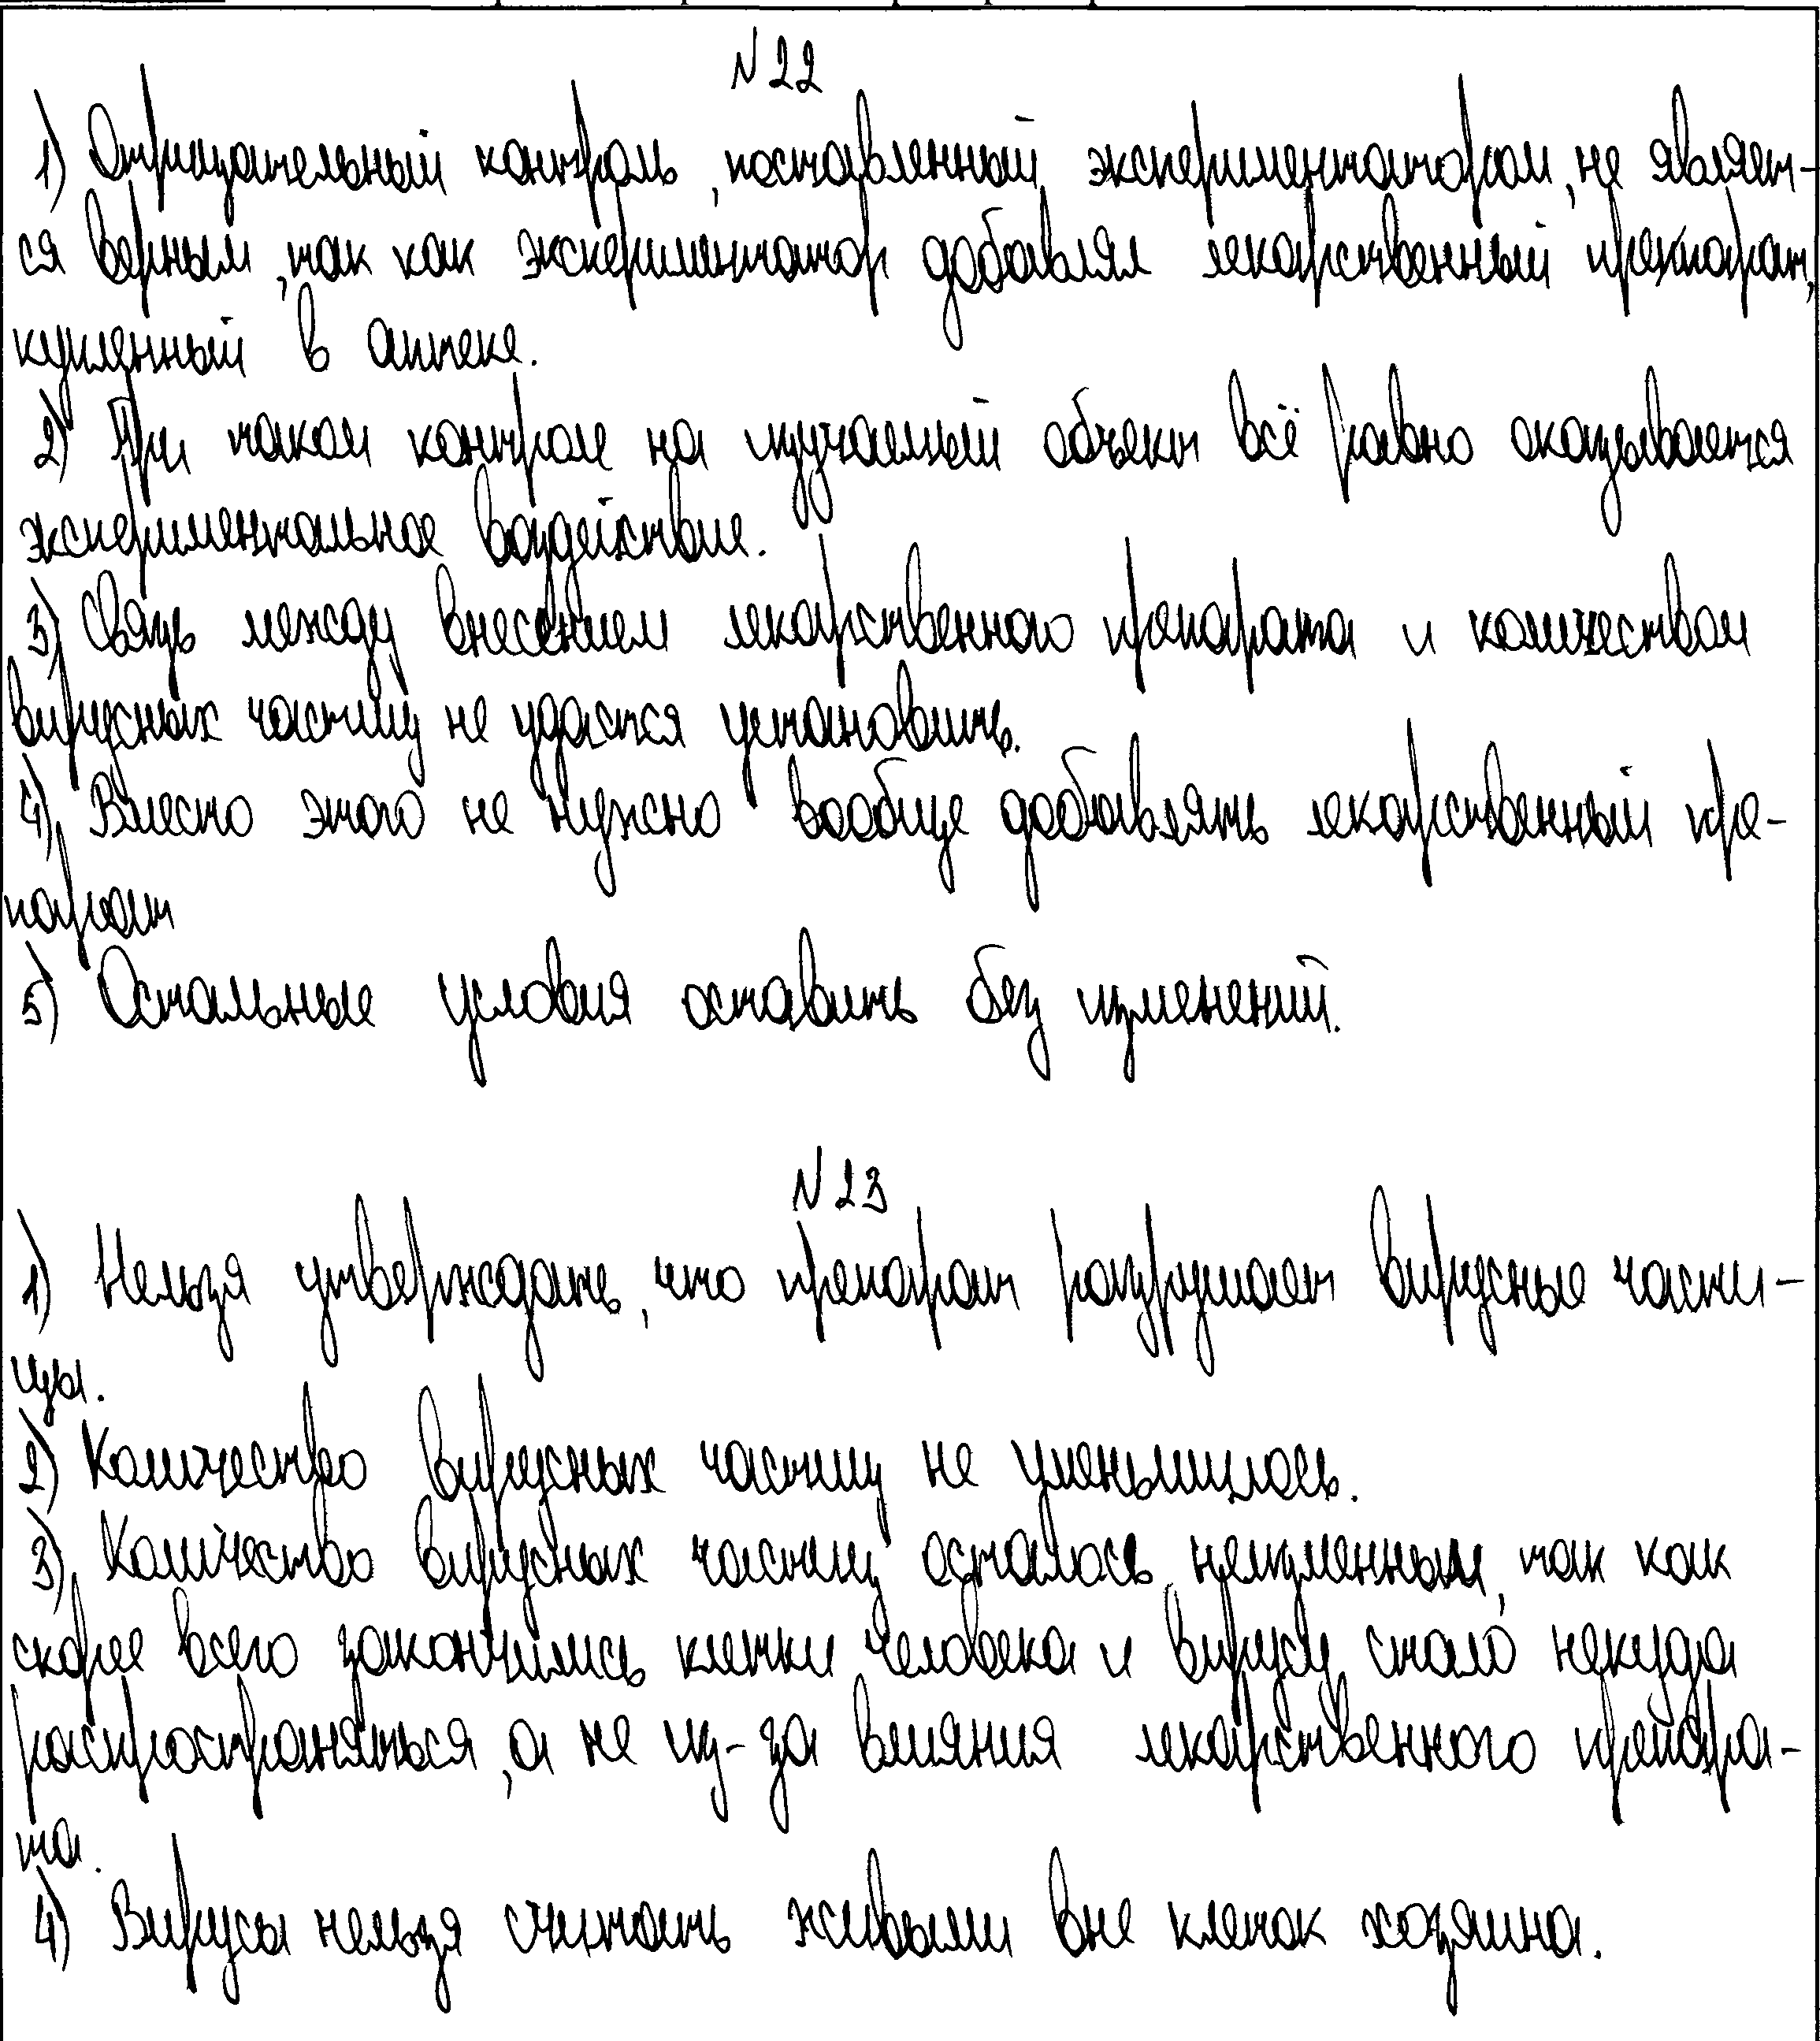 N 22
1) Отрицательный контроль, поставленный экспериментатором, не являет-
ся верным, так как экспериментатор добавлял лекарственный препарат,
купленный в аптеке.
2) При таком контроле на изучаемый объект всё равно оказывается
экспериментальное воздействие.
3) Связь между внесением лекарственного препарата и количеством
вирусных частиц не удастся установить.
4) Вместо этого не нужно вообще добавлять лекарственный пре-
парат
5) Остальные условия оставить без изменений.
N 23
1) Нельзя утверждать, что препарат разрушает вирусные части-
цы.
2) Количество вирусных частиц не уменьшилось.
3) Количество вирусных частиц осталось неизменным, так как
скорее всего закончились клетки человека и вирусу стало некуда
распространяться, а не из-за влияния лекарственного препара-
та.
4) Вирусы нельзя считать живыми вне клеток хозяина.